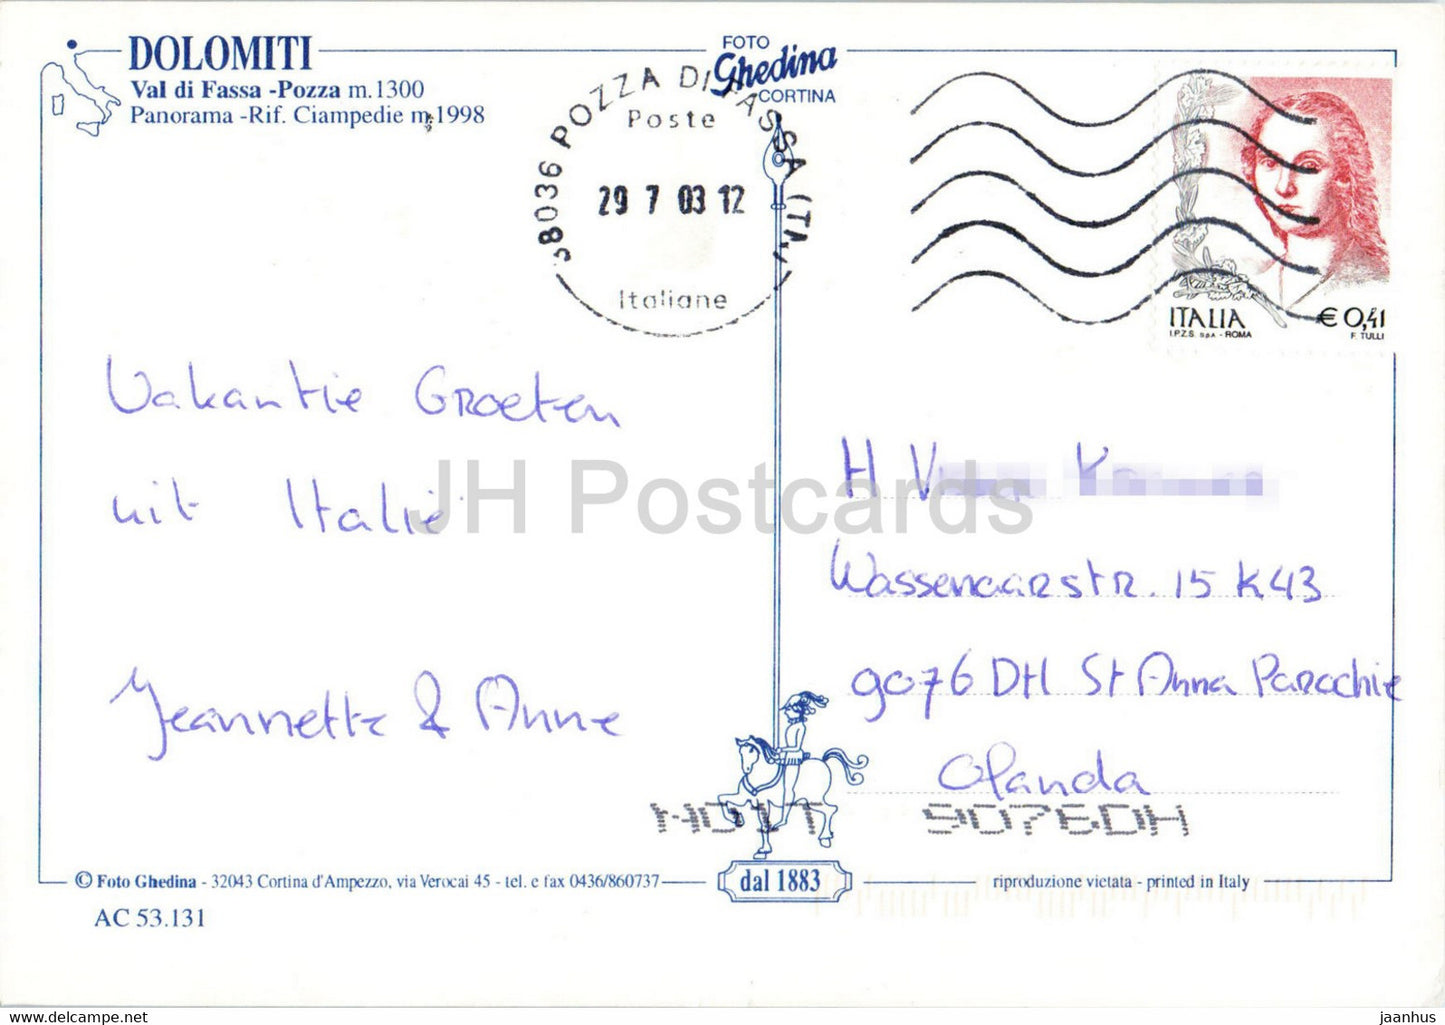 DOLOMITI
Val di Fassa -Pozza m.1300
Panorama -Rif. Ciampedie m.1998
FOTO
Ghedina
CORTINA
38036 POZZA DI FASSA (TN)
Poste
29 7 03 12
Italiane
ITALIA
€ 0,41
I.P.Z.S. S.p.A. - ROMA
F. TULLI
Vakantie Groeten
uit Italië
Jeannette & Anne
H V
Wassenaarstr. 15 K43
9076 DH St Anna Parochie
Olanda
9076DH
JH Postcards
© Foto Ghedina - 32043 Cortina d'Ampezzo, via Verocai 45 - tel. e fax 0436/860737
dal 1883
riproduzione vietata - printed in Italy
AC 53.131
https://www.hippostcard.com
jaanhus